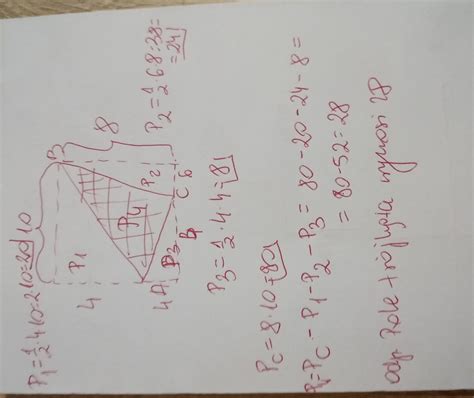 P₁=½·4·10=2·10=20
10
B
8
P₁
P₂
4
P₄
6
C
A
4
P₃
4
P₂=½·6·8=3·8=
=24
P₃=½·4·4=8
Pc=8·10=80
P₄=Pc-P₁-P₂-P₃=80-20-24-8=
=80-52=28
odp. Pole trójkąta wynosi 28